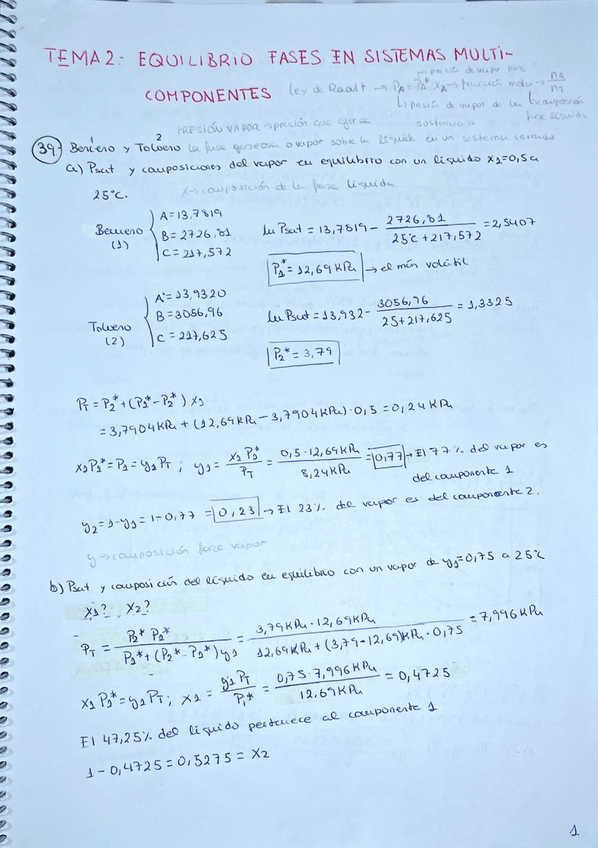 TEMA 2: EQUILIBRIO FASES EN SISTEMAS MULTI-
COMPONENTES
Ley de Raoult → PA = PA* XA → fracción molar → nA/nT
→ presión de vapor
↳ presión de vapor de la
sustancia A
fase líquida
PRESIÓN VAPOR → presión que ejerce
la fase gaseosa o vapor sobre la líquida en un sistema cerrado
1 2
39. Benceno y Tolueno
a) Psat y composiciones del vapor en equilibrio con un líquido x1=0,5 a
25°C.
x → composición de la fase líquida
Benceno (1) { A=13,7819 B=2726,81 C=217,572
ln Psat = 13,7819 - 2726,81 / 25°C+217,572 = 2,5407
P1* = 12,69 KPa → el más volátil
Tolueno (2) { A=13,9320 B=3056,96 C=217,625
ln Psat = 13,932 - 3056,96 / 25+217,625 = 1,3325
P2* = 3,79
PT = P2* + (P1* - P2*) x1
= 3,7904 KPa + (12,69 KPa - 3,7904 KPa) · 0,5 = 0,24 KPa
x1 P1* = P1 = y1 PT ; y1 = x1 P1* / PT = 0,5 · 12,69 KPa / 8,24 KPa = 0,77 → El 77% del vapor es
del componente 1
y2 = 1 - y1 = 1 - 0,77 = 0,23 → El 23% del vapor es del componente 2.
y → composición fase vapor
b) Psat y composición del líquido en equilibrio con un vapor de y1=0,75 a 25°C
x1? x2?
PT = P1* P2* / P1* + (P2* - P1*) y1 = 3,79 KPa · 12,69 KPa / 12,69 KPa + (3,79 - 12,69) KPa · 0,75 = 7,996 KPa
x1 P1* = y1 PT ; x1 = y1 PT / P1* = 0,75 · 7,996 KPa / 12,69 KPa = 0,4725
El 47,25% del líquido pertenece al componente 1
1 - 0,4725 = 0,5275 = x2
1